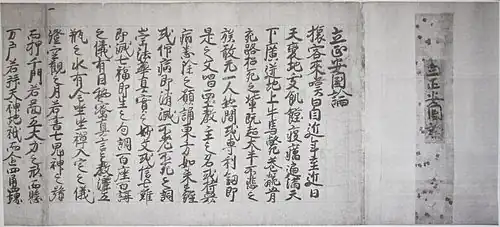 立正安國論
旅客来嘆曰自近年至近日
天變地夭飢饉疫癘遍満天
下廣迸地上牛馬斃巷骸骨
充路招死之輩既超大半不悲之
族敢无一人然間或専利釼即
是之文唱西土教主之名或持衆
病悉除之願誦東方如来之經
或仰病即消滅不老不死之詞
崇法華真實之妙文或信七難
即滅七福即生之句調百座百講
之儀有因秘密真言之教灑五
瓶之水有全坐禅入定之儀
澄空觀之月若書七鬼神之号
而押千門若啚五大力之形而懸
万戸若拝天神地祇而企四角四
立正安國論